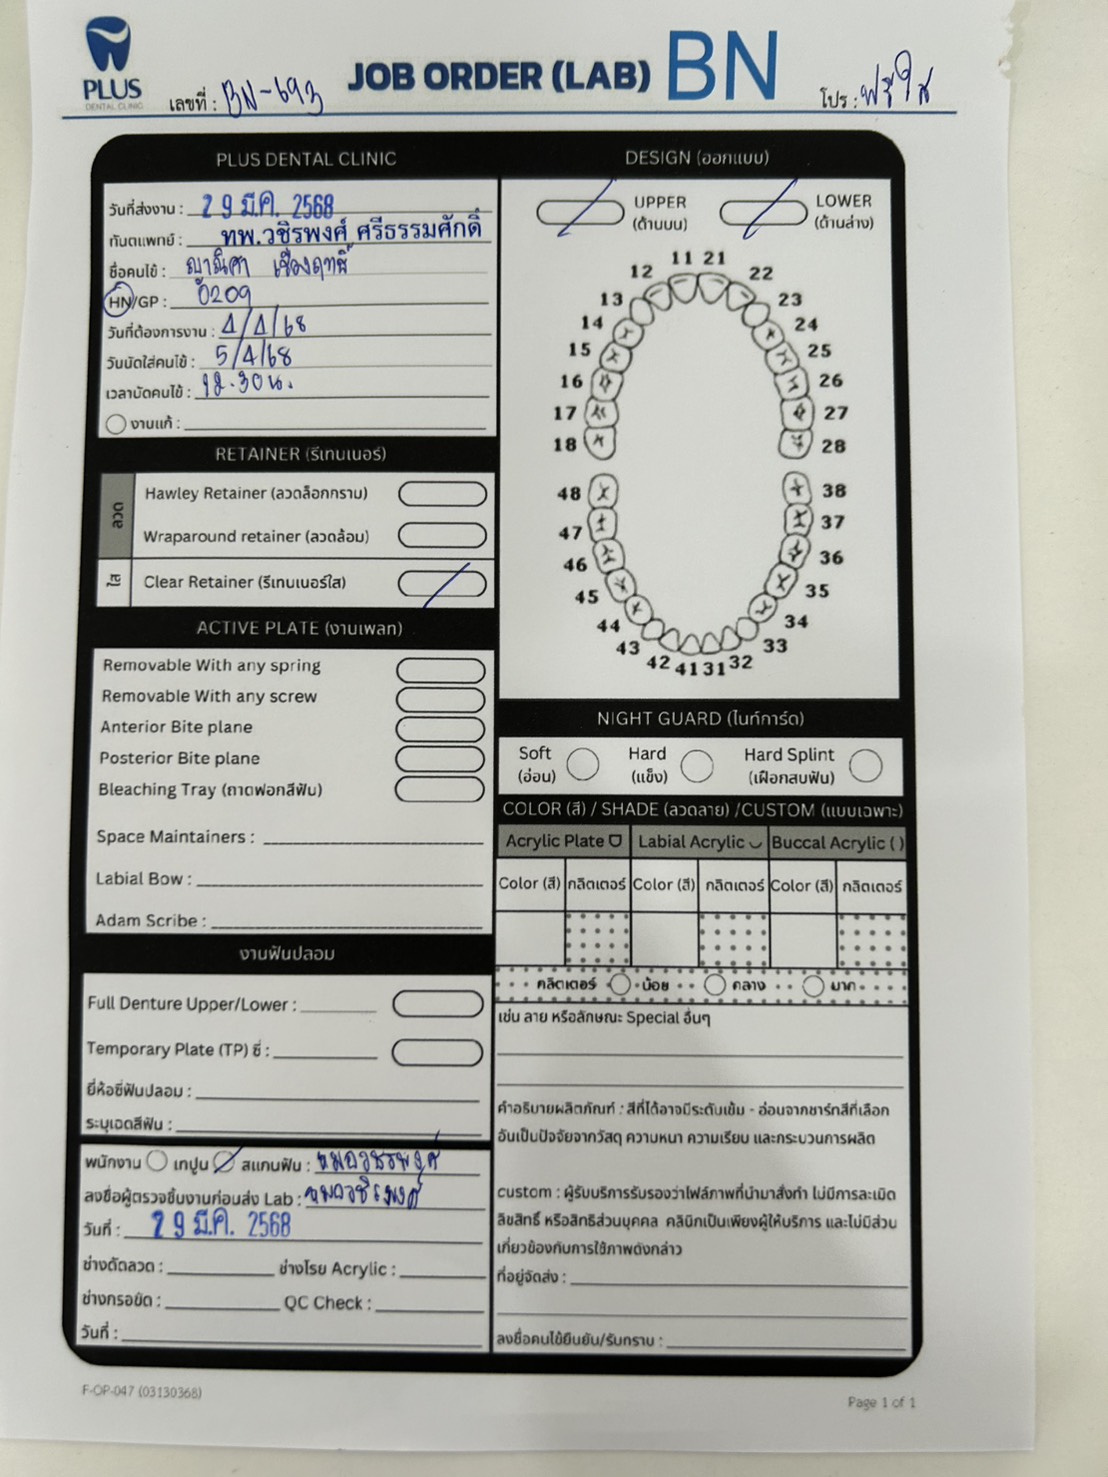 PLUS
DENTAL CLINIC
เลขที่ : BN-693
JOB ORDER (LAB) BN
โปร : ฟรีใส
PLUS DENTAL CLINIC
วันที่ส่งงาน : 29 มี.ค. 2568
ทันตแพทย์ : ทพ.วชิรพงศ์ ศรีธรรมศักดิ์
ชื่อคนไข้ : ญาณิศา
HN/GP : 0209
วันที่ต้องการงาน : 4/4/68
วันนัดใส่คนไข้ : 5/4/68
เวลานัดคนไข้ : 12.30น.
งานแก้ :
RETAINER (รีเทนเนอร์)
ลวด
Hawley Retainer (ลวดล็อกกราม)
Wraparound retainer (ลวดล้อม)
ใส
Clear Retainer (รีเทนเนอร์ใส)
ACTIVE PLATE (งานเพลท)
Removable With any spring
Removable With any screw
Anterior Bite plane
Posterior Bite plane
Bleaching Tray (ถาดฟอกสีฟัน)
Space Maintainers :
Labial Bow :
Adam Scribe :
งานฟันปลอม
Full Denture Upper/Lower :
Temporary Plate (TP) ซี่ :
ยี่ห้อซี่ฟันปลอม :
ระบุเฉดสีฟัน :
พนักงาน เทปูน สแกนฟัน : หมอวชิรพงศ์
ลงชื่อผู้ตรวจชิ้นงานก่อนส่ง Lab : หมอวชิรพงศ์
วันที่ : 29 มี.ค. 2568
ช่างดัดลวด : ช่างโรย Acrylic :
ช่างกรอขัด : QC Check :
วันที่ :
DESIGN (ออกแบบ)
UPPER
(ด้านบน)
LOWER
(ด้านล่าง)
11 21
12 22
13 23
14 24
15 25
16 26
17 27
18 28
48 38
47 37
46 36
45 35
44 34
43 33
42 41 31 32
NIGHT GUARD (ไนท์การ์ด)
Soft
(อ่อน)
Hard
(แข็ง)
Hard Splint
(เฝือกสบฟัน)
COLOR (สี) / SHADE (ลวดลาย) /CUSTOM (แบบเฉพาะ)
Acrylic Plate Labial Acrylic Buccal Acrylic ( )
Color (สี) กลิตเตอร์ Color (สี) กลิตเตอร์ Color (สี) กลิตเตอร์
กลิตเตอร์ น้อย กลาง มาก
เช่น ลาย หรือลักษณะ Special อื่นๆ
คำอธิบายผลิตภัณฑ์ : สีที่ได้อาจมีระดับเข้ม - อ่อนจากชาร์ทสีที่เลือก
อันเป็นปัจจัยจากวัสดุ ความหนา ความเรียบ และกระบวนการผลิต
custom : ผู้รับบริการรับรองว่าไฟล์ภาพที่นำมาสั่งทำ ไม่มีการละเมิด
ลิขสิทธิ์ หรือสิทธิส่วนบุคคล คลินิกเป็นเพียงผู้ให้บริการ และไม่มีส่วน
เกี่ยวข้องกับการใช้ภาพดังกล่าว
ที่อยู่จัดส่ง :
ลงชื่อคนไข้ยืนยัน/รับทราบ :
F-OP-047 (03130368)
Page 1 of 1